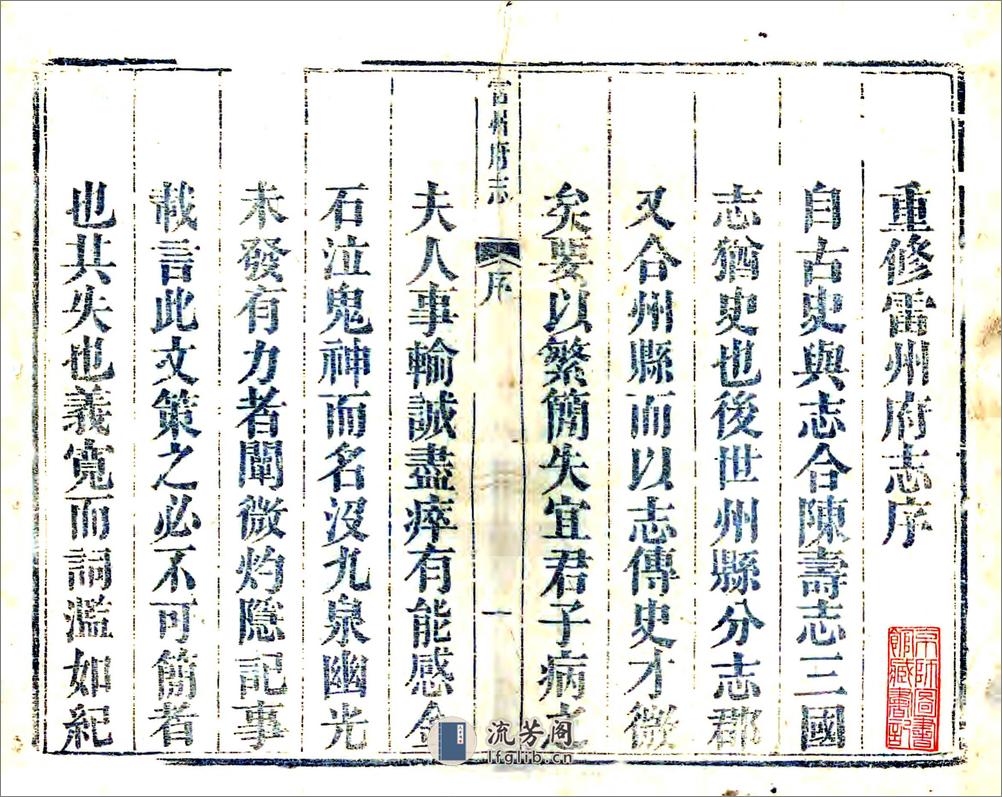 重修雷州府志序
自古史與志合陳壽志三國
志猶史也後世州縣分志郡
又合州縣而以志傳史才微
矣要以繁簡失宜君子病之
雷州府志
序
一
夫人事輸誠盡瘁有能感金
石泣鬼神而名沒九泉幽光
未發有力者闡微灼隱記事
裁言此文策之必不可簡者
也其失也義寬而詞濫如紀
流芳阁
lfglib.cn